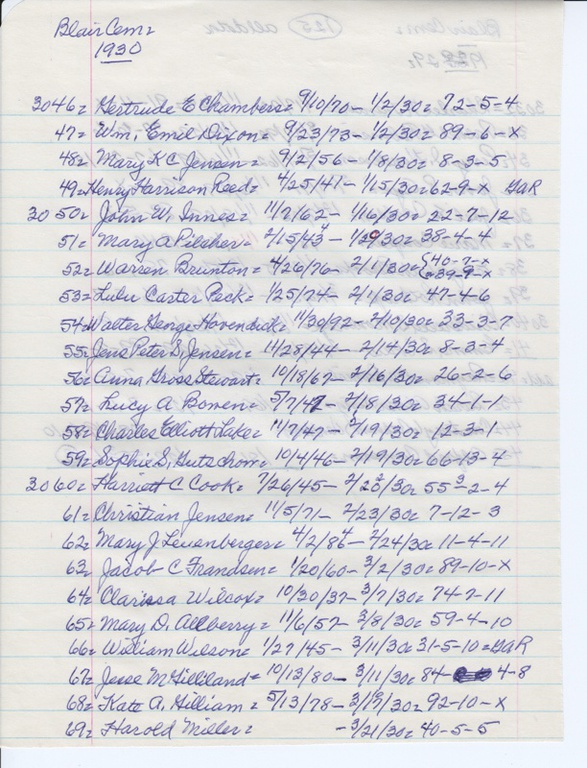 Blair Cem=
1930
3046= Gertrude E Chambers= 9/10/70- 1/2/30= 72-5-4
47= Wm, Emil Dixon= 9/23/73- 1/2/30= 89-6-x
48= Mary K C Jensen= 9/2/56- 1/8/30= 8-3-5
49= Henry Harrison Reed= 4/25/41- 1/15/30= 62-9-x GAR
3050= John W. Innes= 11/7/62- 1/16/30= 22-7-12
51= Mary A Pilcher= 2/15/43 1/29/30= 38-4-4
52= Warren Brunton= 4/26/76- 2/1/30= 40-7-x
39-9-x
53= Lulu Carter Peck= 1/25/74- 2/1/30= 47-4-6
54= Walter George Hovendick= 11/30/92- 2/10/30= 33-3-7
55= Jens Peter S, Jensen= 11/28/44- 2/14/30= 8-3-4
56= Anna Gross Stewart= 10/18/67- 2/16/30= 26-2-6
57= Lucy A Bowen= 5/7/47- 2/18/30= 34-1-1
58= Charles Elliott Lake= 11/7/47- 2/19/30= 12-3-1
59= Sophie S, Gutschow= 10/4/46- 2/19/30= 66-13-4
3060= Harriett C Cook= 7/26/45- 55-2-4
61= Christian Jensen= 11/5/71- 2/23/30= 7-12-3
62= Mary J Levenberger= 4/2/84- 2/24/30= 11-4-11
63= Jacob C Frandsen= 1/20/60- 3/2/30= 89-10-x
64= Clarissa Wilcox= 10/30/37- 3/7/30= 74-7-11
65= Mary D. Allberry= 11/6/57- 3/8/30= 59-4-10
66= William Wilson= 1/27/45- 3/11/30= 31-5-10= GAR
67= Jesse McGilliland= 10/13/80- 3/11/30= 84 4-8
68= Kate A. Gilliam= 5/13/78- 92-10-x
69= Harold Miller= -3/21/30= 40-5-5